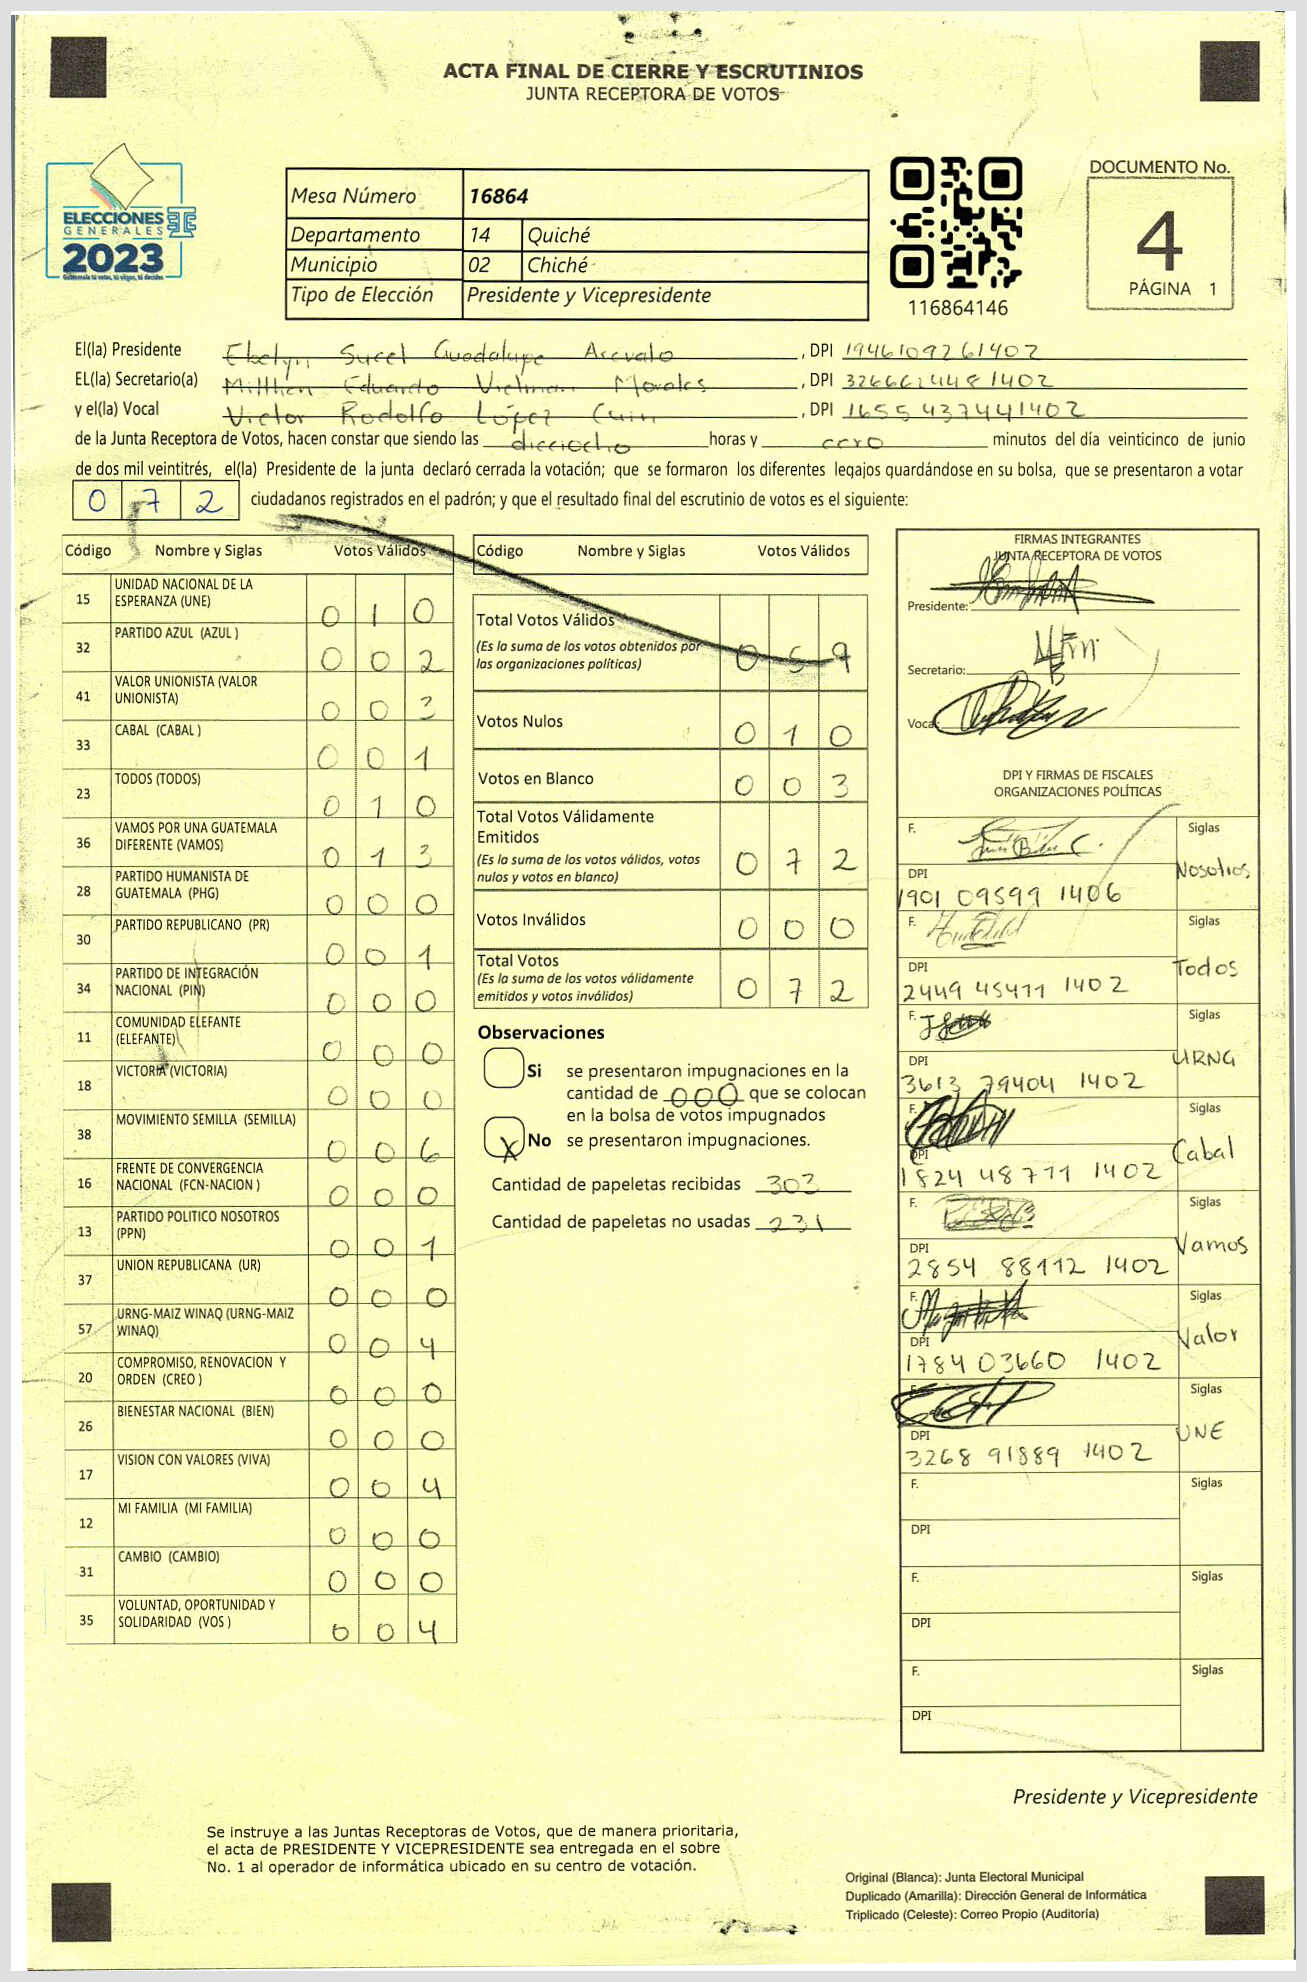 ACTA FINAL DE CIERRE Y ESCRUTINIOS
JUNTA RECEPTORA DE VOTOS
ELECCIONES
GENERALES
2023
Guatemala tú votas, tú eliges, tú decides
Mesa Número 16864
Departamento 14 Quiché
Municipio 02 Chiché
Tipo de Elección Presidente y Vicepresidente
116864146
DOCUMENTO No.
4
PÁGINA 1
El(la) Presidente Ebelyn Sucel Guadalupe Arevalo , DPI 1946109261402
EL(la) Secretario(a) Eduardo Morales , DPI 3266624481402
y el(la) Vocal Victor Rodolfo López , DPI 1655437441402
de la Junta Receptora de Votos, hacen constar que siendo las dieciocho horas y cero minutos del día veinticinco de junio
de dos mil veintitrés, el(la) Presidente de la junta declaró cerrada la votación; que se formaron los diferentes legajos guardándose en su bolsa, que se presentaron a votar
0 7 2 ciudadanos registrados en el padrón; y que el resultado final del escrutinio de votos es el siguiente:
Código Nombre y Siglas Votos Válidos
15 UNIDAD NACIONAL DE LA ESPERANZA (UNE) 0 1 0
32 PARTIDO AZUL (AZUL ) 0 0 2
41 VALOR UNIONISTA (VALOR UNIONISTA) 0 0 3
33 CABAL (CABAL ) 0 0 1
23 TODOS (TODOS) 0 1 0
36 VAMOS POR UNA GUATEMALA DIFERENTE (VAMOS) 0 1 3
28 PARTIDO HUMANISTA DE GUATEMALA (PHG) 0 0 0
30 PARTIDO REPUBLICANO (PR) 0 0 1
34 PARTIDO DE INTEGRACIÓN NACIONAL (PIN) 0 0 0
11 COMUNIDAD ELEFANTE (ELEFANTE) 0 0 0
18 VICTORIA (VICTORIA) 0 0 0
38 MOVIMIENTO SEMILLA (SEMILLA) 0 0 6
16 FRENTE DE CONVERGENCIA NACIONAL (FCN-NACION ) 0 0 0
13 PARTIDO POLITICO NOSOTROS (PPN) 0 0 1
37 UNION REPUBLICANA (UR) 0 0 0
57 URNG-MAIZ WINAQ (URNG-MAIZ WINAQ) 0 0 4
20 COMPROMISO, RENOVACION Y ORDEN (CREO ) 0 0 0
26 BIENESTAR NACIONAL (BIEN) 0 0 0
17 VISION CON VALORES (VIVA) 0 0 4
12 MI FAMILIA (MI FAMILIA) 0 0 0
31 CAMBIO (CAMBIO) 0 0 0
35 VOLUNTAD, OPORTUNIDAD Y SOLIDARIDAD (VOS ) 0 0 4
Código Nombre y Siglas Votos Válidos
Total Votos Válidos 0 5 9
(Es la suma de los votos obtenidos por
las organizaciones políticas)
Votos Nulos 0 1 0
Votos en Blanco 0 0 3
Total Votos Válidamente
Emitidos 0 7 2
(Es la suma de los votos válidos, votos
nulos y votos en blanco)
Votos Inválidos 0 0 0
Total Votos 0 7 2
(Es la suma de los votos válidamente
emitidos y votos inválidos)
Observaciones
Si se presentaron impugnaciones en la
cantidad de 000 que se colocan
en la bolsa de votos impugnados
X No se presentaron impugnaciones.
Cantidad de papeletas recibidas 303
Cantidad de papeletas no usadas 231
FIRMAS INTEGRANTES
JUNTA RECEPTORA DE VOTOS
Presidente:
Secretario:
Vocal:
DPI Y FIRMAS DE FISCALES
ORGANIZACIONES POLÍTICAS
F. Siglas
DPI Nosotros
1901 09599 1406
F. Siglas
DPI Todos
2449 45411 1402
F. Siglas
DPI URNG
3613 79404 1402
F. Siglas
DPI Cabal
1824 48711 1402
F. Siglas
DPI Vamos
2854 88112 1402
F. Siglas
DPI Valor
1784 03660 1402
F. Siglas
DPI UNE
3268 91889 1402
F. Siglas
DPI
F. Siglas
DPI
F. Siglas
DPI
Presidente y Vicepresidente
Se instruye a las Juntas Receptoras de Votos, que de manera prioritaria,
el acta de PRESIDENTE Y VICEPRESIDENTE sea entregada en el sobre
No. 1 al operador de informática ubicado en su centro de votación.
Original (Blanca): Junta Electoral Municipal
Duplicado (Amarilla): Dirección General de Informática
Triplicado (Celeste): Correo Propio (Auditoría)